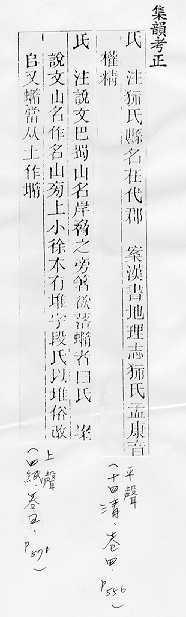 集韻考正
氏 注狋氏縣名在代郡 案漢書地理志狋氏孟康音
權精
氏 注說文巴蜀山名岸脅之旁箸欲落𡐦者曰氏 案
說文山名作名山菊上小徐本有堆字段氏以堆俗改
𠂤又𡐦當从土作𡐦
平聲
(十四清·卷四·P556)
上聲
(四紙·卷五·P571)